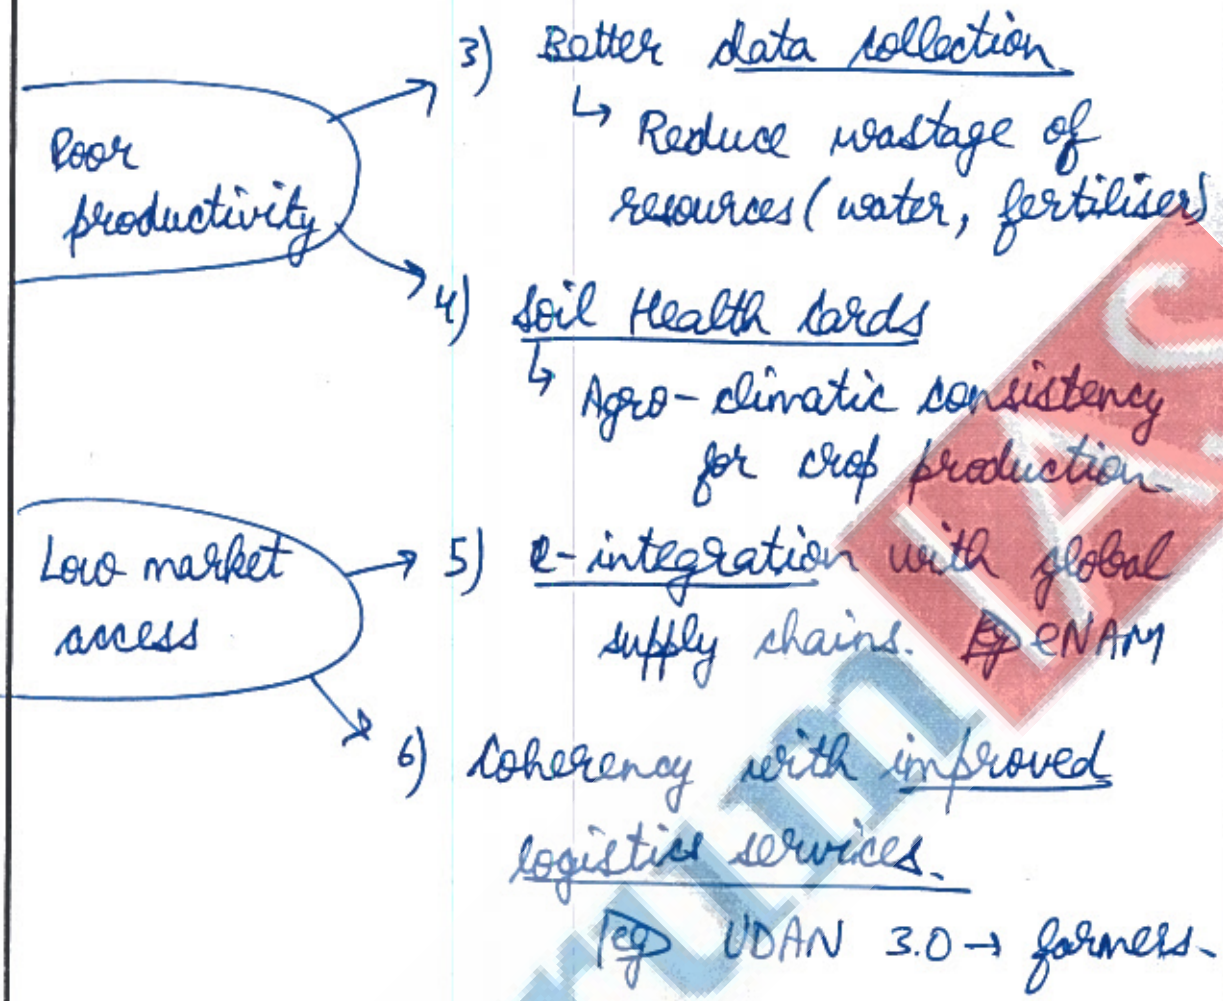 3) Better data collection
Poor
productivity
↳ Reduce wastage of
resources (water, fertiliser)
4) Soil Health Cards
↳ Agro-climatic consistency
for crop production.
Low market
access
5) e-integration with global
supply chains. Eg eNAM
6) Coherency with improved
logistics services.
eg UDAN 3.0 → farmers.
rum IAS